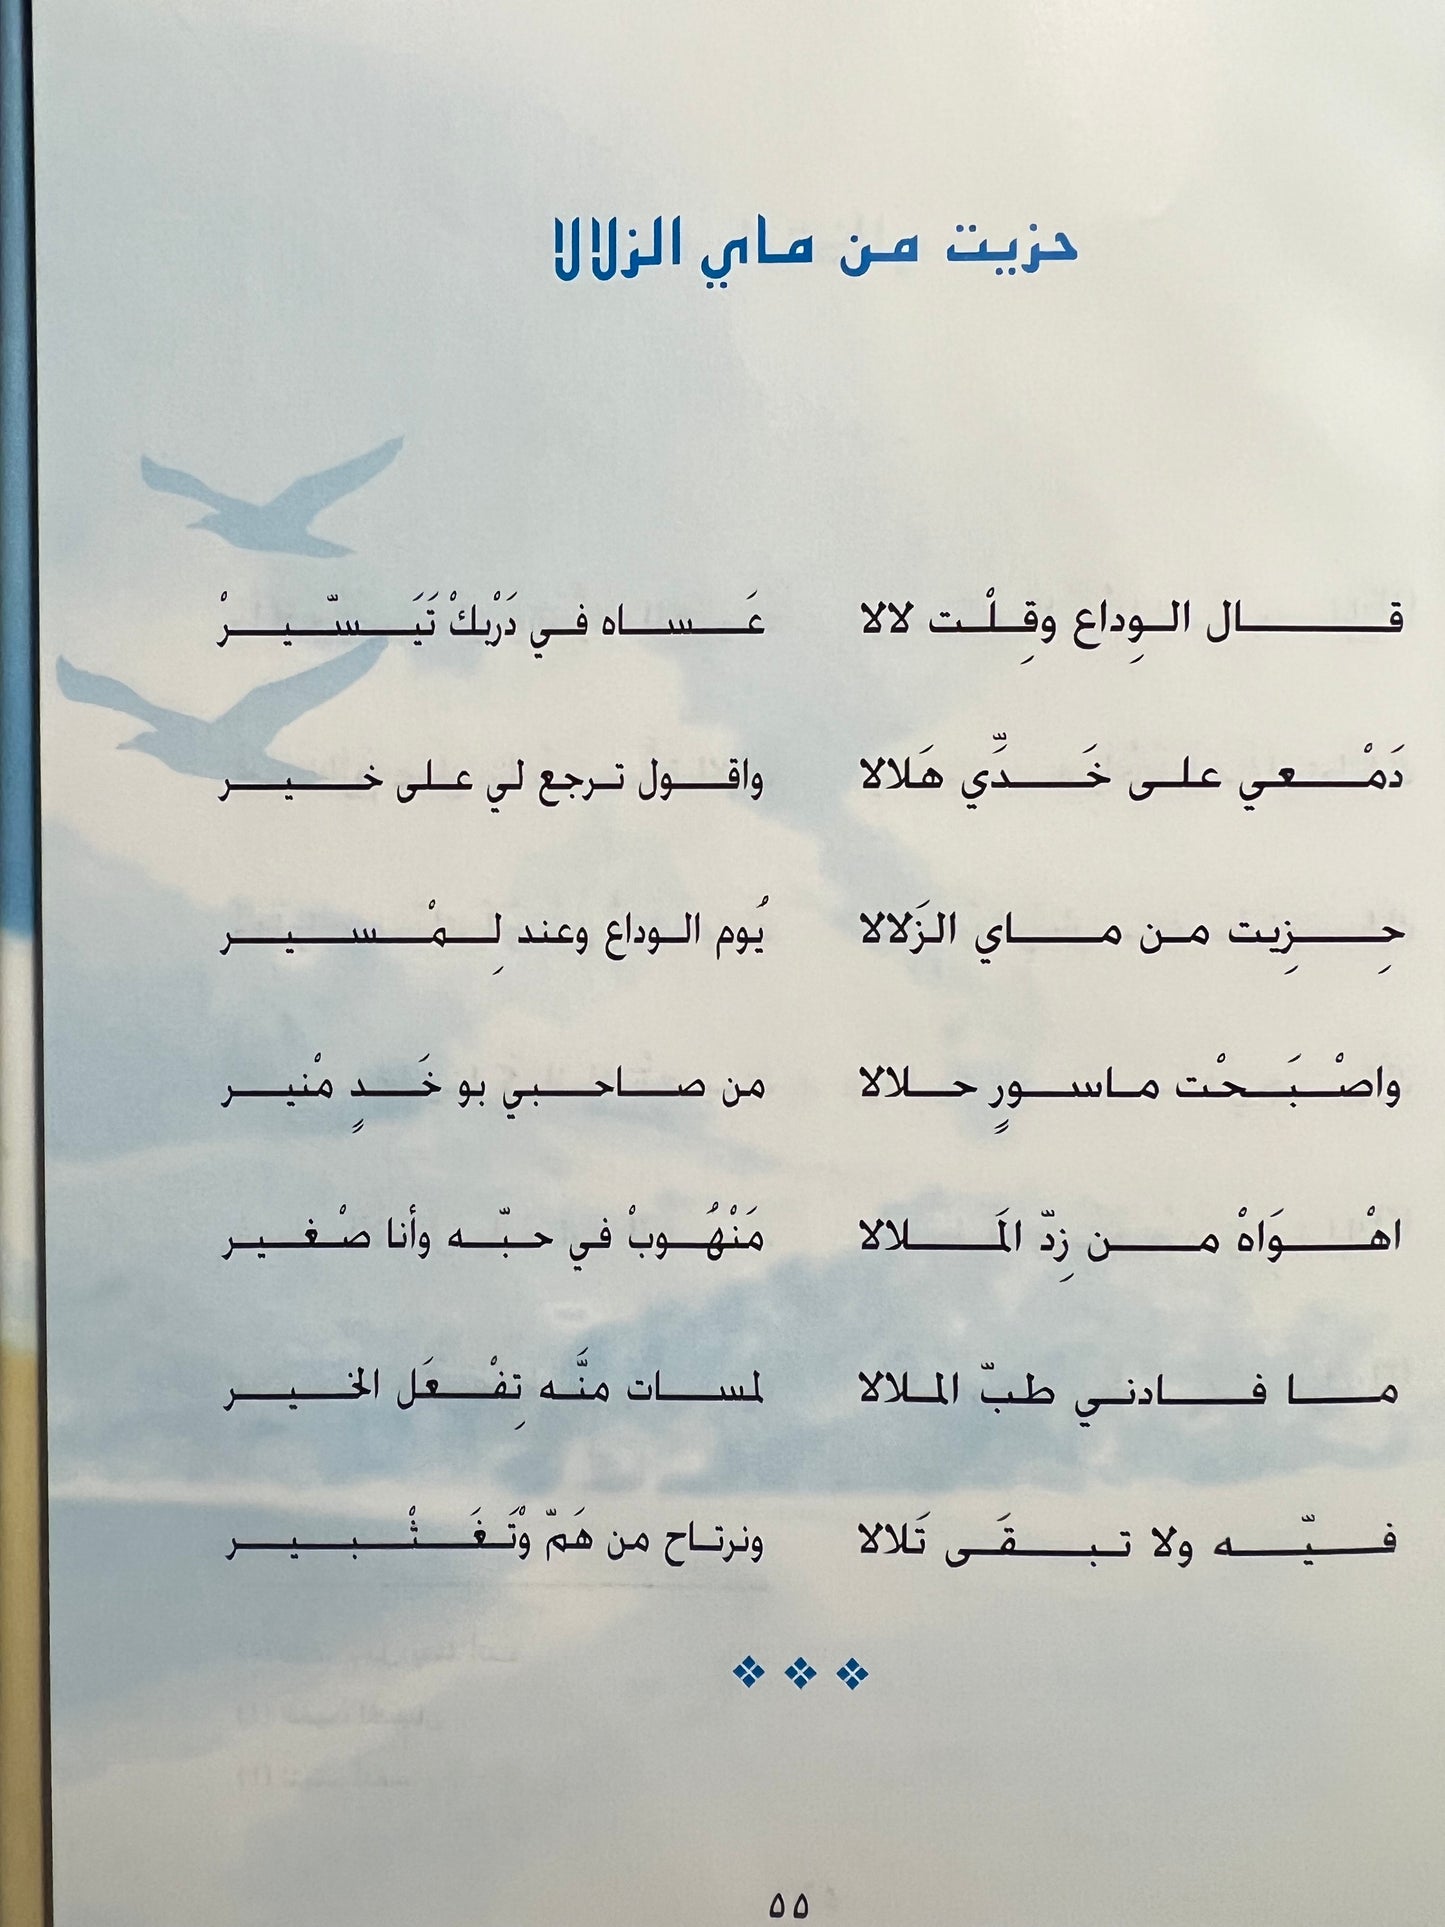 حزيت من ماي الزلالا
قال الوِداع وقِلْت لالا عَساه في دَرْبكْ تَيَسّيرْ
دَمْعي على خَدَّي هَلالا واقول ترجع لي على خير
حِزِيت من ماي الزَلالا يُوم الوداع وعند لِمْسير
واصْبَحْت ماسورٍ حلالا من صاحبي بو خَدٍ مْنير
اهْوَاهْ من زِدّ المَلالا مَنْهُوبْ في حبّه وأنا صْغير
ما فادني طبّ الملالا لمسات منَّه تِفْعَل الخير
فيّه ولا تبقَى تَلالا ونرتاح من هَمّ وْتَغَثْبير
٥٥